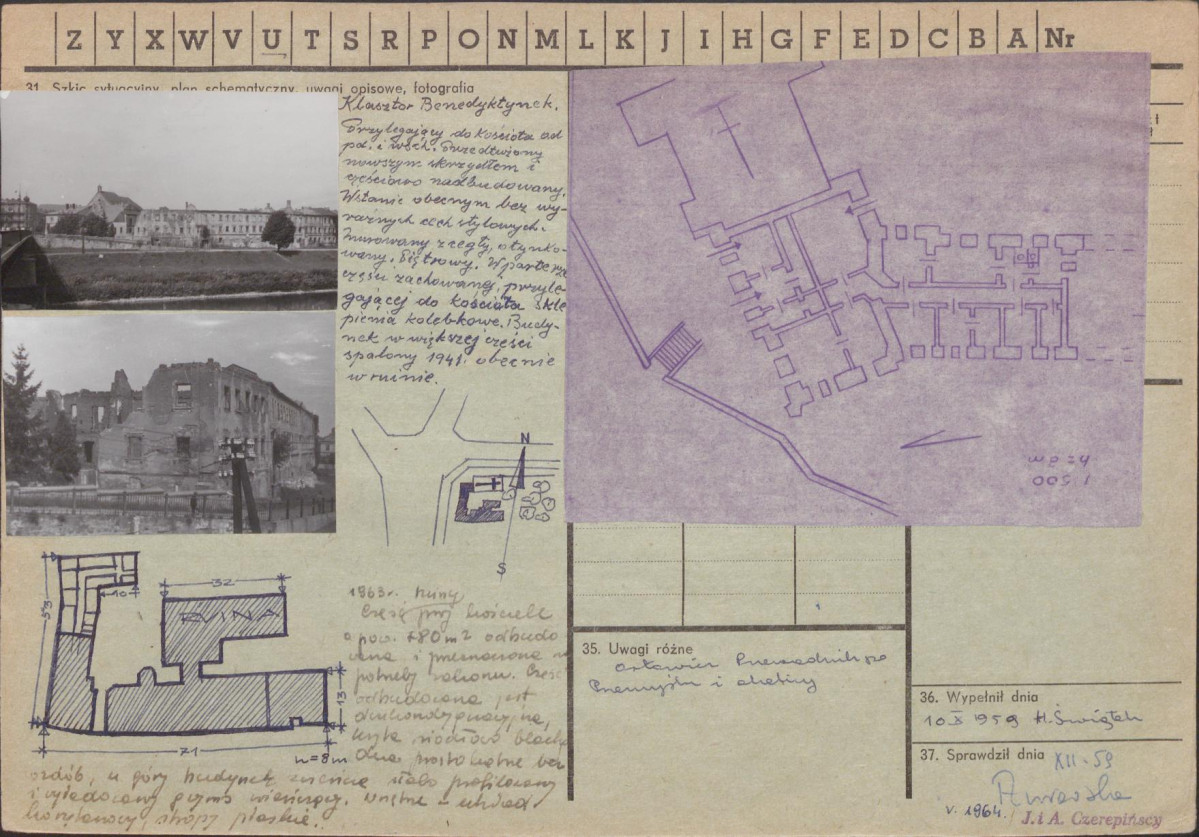 Z Y X W V U T S R P O N M L K J I H G F E D C B A Nr
31. Szkic sytuacyjny, plan schematyczny, uwagi opisowe, fotografia
Klasztor Benedyktynek.
Przylegający do kościoła od
pd. i wsch. Przedłużony
nowszym skrzydłem i
częściowo nadbudowany.
W stanie obecnym bez wy-
raźnych cech stylowych.
Murowany z cegły, otynko-
wany. Piętrowy. W parterze
części zachowanej, przyle-
gającej do kościoła skle
pienia kolebkowe. Budy-
nek w większej części
spalony 1941. obecnie
w ruinie.
N
S
32
10
53
RUINA
13
71
h=8m
1963r. ruiny
Część przy kościele
o pow. 780 m² odbudo
wana i przeznaczona na
potrzeby zakonu. Część
odbudowana jest
dwukondygnacyjna,
kryta siodłowo blachą
okna prostokątne bez
ozdób, u góry budynek zwieńcza słabo profilowany
i wyładowany gzyms wieńczący. Wnętrze - układ
korytarzowy, stropy płaskie.
1:500
35. Uwagi różne
Przemyśla i okolicy
36. Wypełnił dnia
10 X 1959 H. Świątek
37. Sprawdził dnia XII-59
V. 1964. J. i A. Czerepińscy